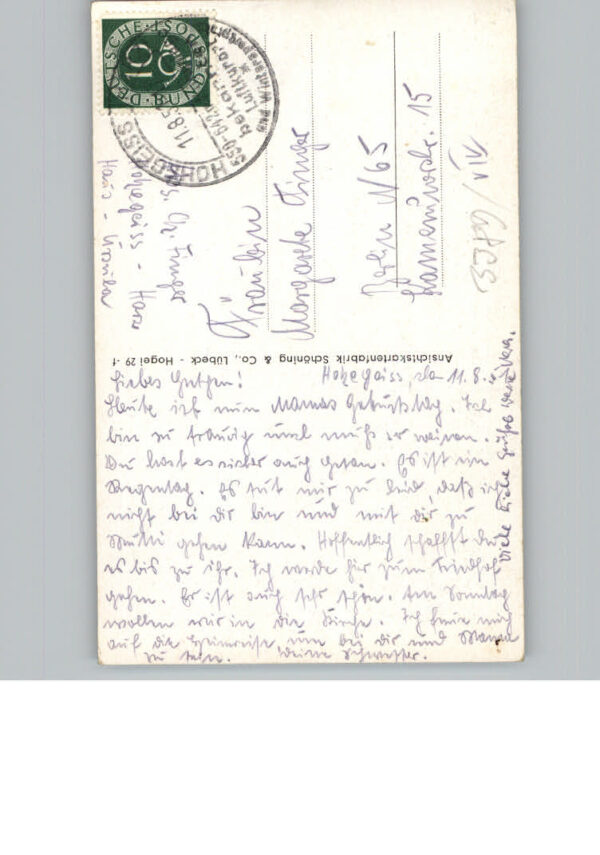 DEUTSCHE BUNDESPOST
10
HOHEGEISS
11.8.5
Luftkurort
Gr. Finger
Hohegeiss - Harz
Haus - Ursula
Fräulein
Margarete Finger
Berlin N 65
15
Ansichtskartenfabrik Schöning & Co., Lübeck - Hogei 29 -f
Hohegeiss, den 11.8.
Liebes Gretchen!
Heute ist nun Mamas Geburtstag. Ich
bin so traurig und muß so weinen.
Du hast es sicher auch getan. Es ist ein
Regentag. Es tut mir so leid, daß ich
nicht bei dir bin und mit dir zu
Mutti gehen kann. Hoffentlich schaffst du
es bis zu ihr. Ich werde hier zum Friedhof
gehen. Er ist auch sehr schön. Am Sonntag
wollen wir in die Kirche. Ich freue mich
auf die Heimreise, um bei dir und Mama
zu sein. Deine Schwester.
Viele liebe Grüße